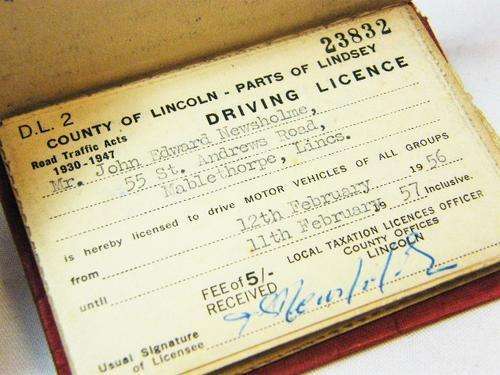 23832
D.L. 2
COUNTY OF LINCOLN - PARTS OF LINDSEY
Road Traffic Acts
1930-1947
DRIVING LICENCE
Mr. John Edward Newsholme,
55 St. Andrews Road,
Mablethorpe, Lincs.
is hereby licensed to drive MOTOR VEHICLES OF ALL GROUPS
from 12th February 1956
until 11th February 57 Inclusive.
FEE of 5/-
RECEIVED
LOCAL TAXATION LICENCES OFFICER
COUNTY OFFICES
LINCOLN
Usual Signature
of Licensee